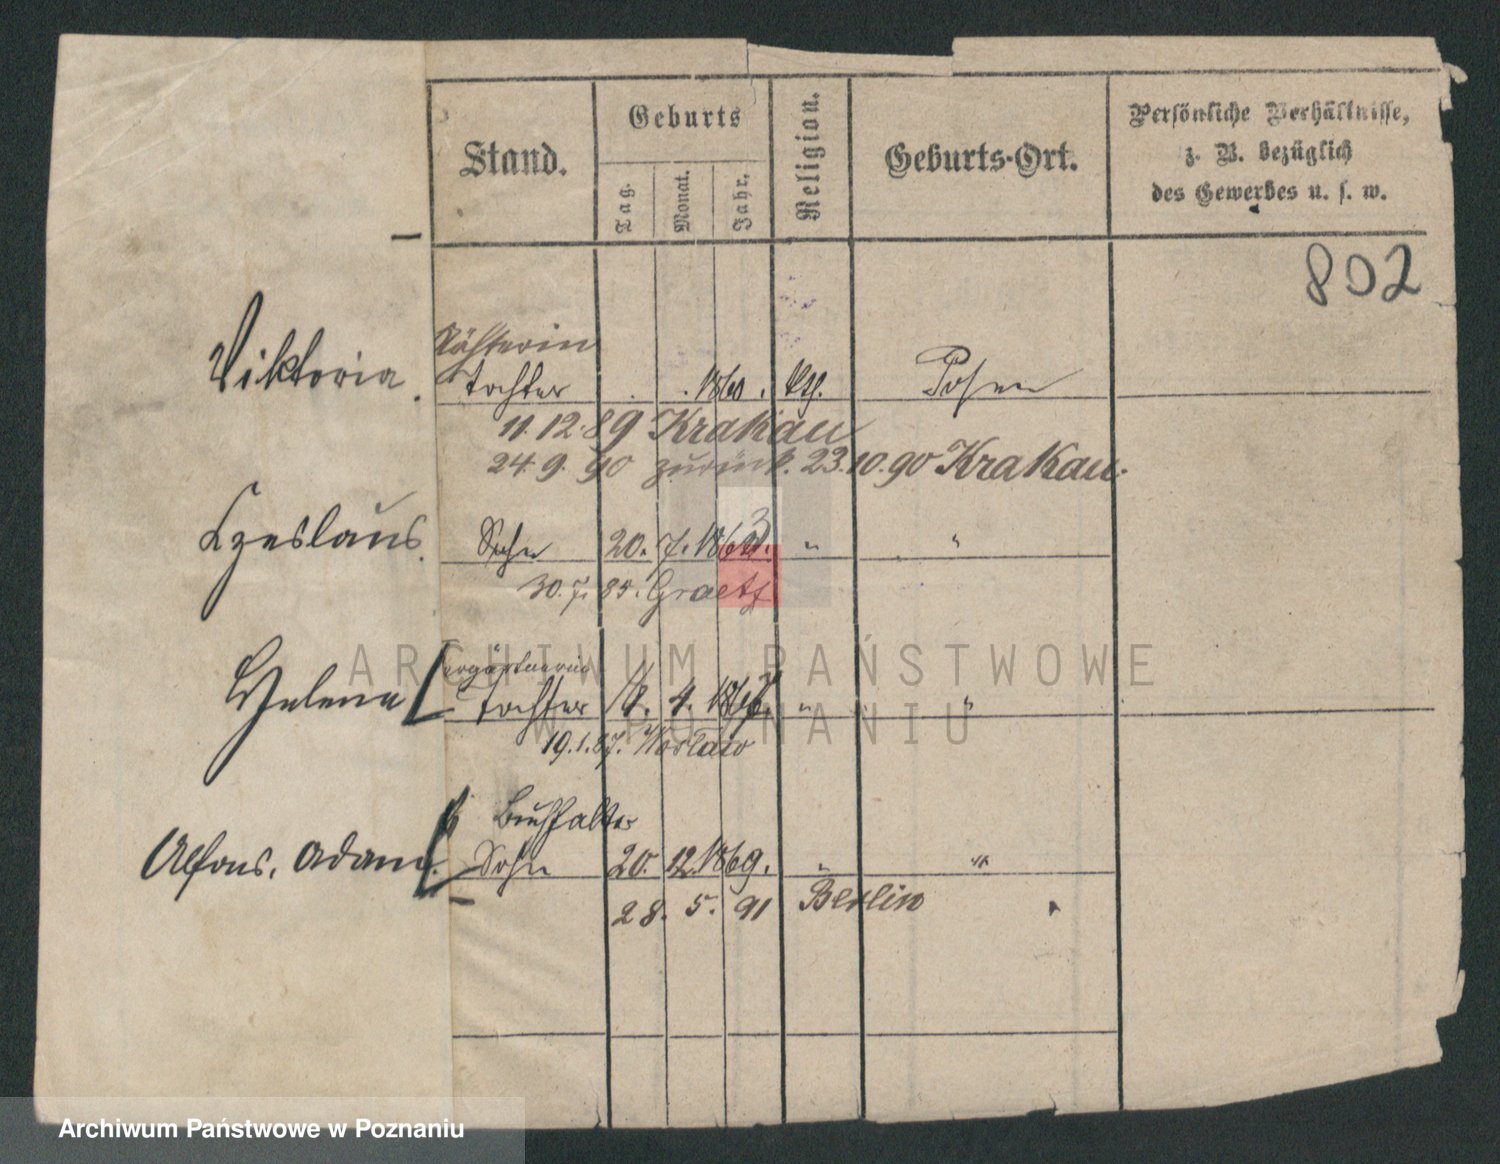 Stand.
Geburts
Tag.
Monat.
Jahr.
Religion.
Geburts-Ort.
Persönliche Verhältnisse,
z. B. bezüglich
des Gewerbes u. s. w.
802
Nähterin
Viktoria. Tochter . . 1860. kth. Posen
11.12.89 Krakau
24.9.90 zurück. 23.10.90 Krakau.
3
Czeslaus. Sohn 20. 7. " "
30.7.85. Graetz
Helena Tochter 4. " "
19.1.87.
Buchhalter
Alfons, Adam. Sohn 20. 12. 1869. " "
28. 5. 91 Berlin
ARCHIWUM PAŃSTWOWE
W POZNANIU
Archiwum Państwowe w Poznaniu